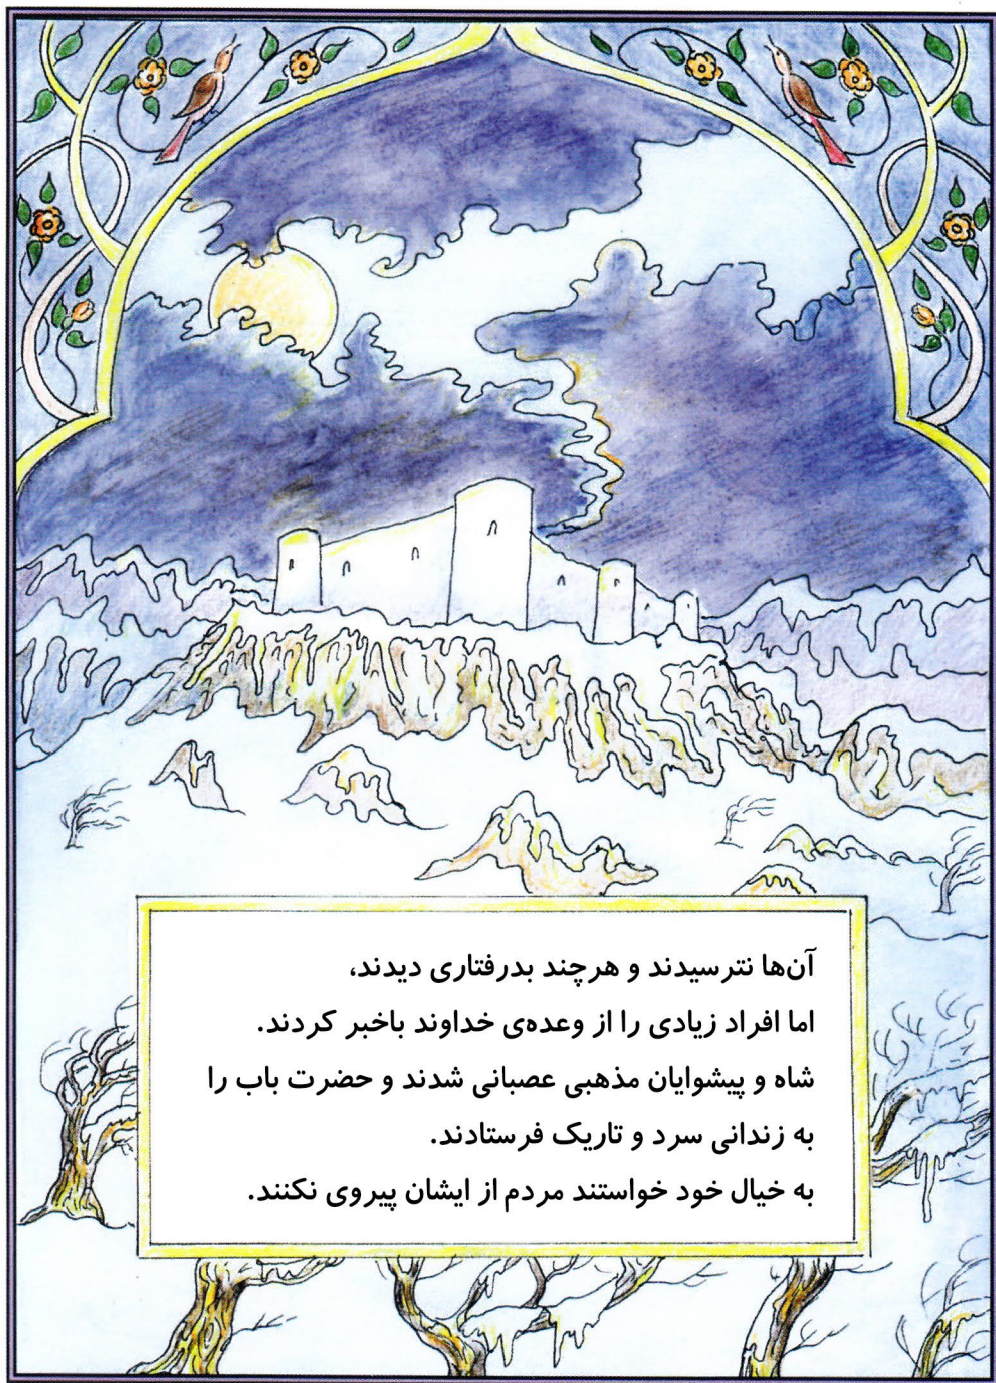 آن‌ها نترسیدند و هرچند بدرفتاری دیدند،
اما افراد زیادی را از وعده‌ی خداوند باخبر کردند.
شاه و پیشوایان مذهبی عصبانی شدند و حضرت باب را
به زندانی سرد و تاریک فرستادند.
به خیال خود خواستند مردم از ایشان پیروی نکنند.